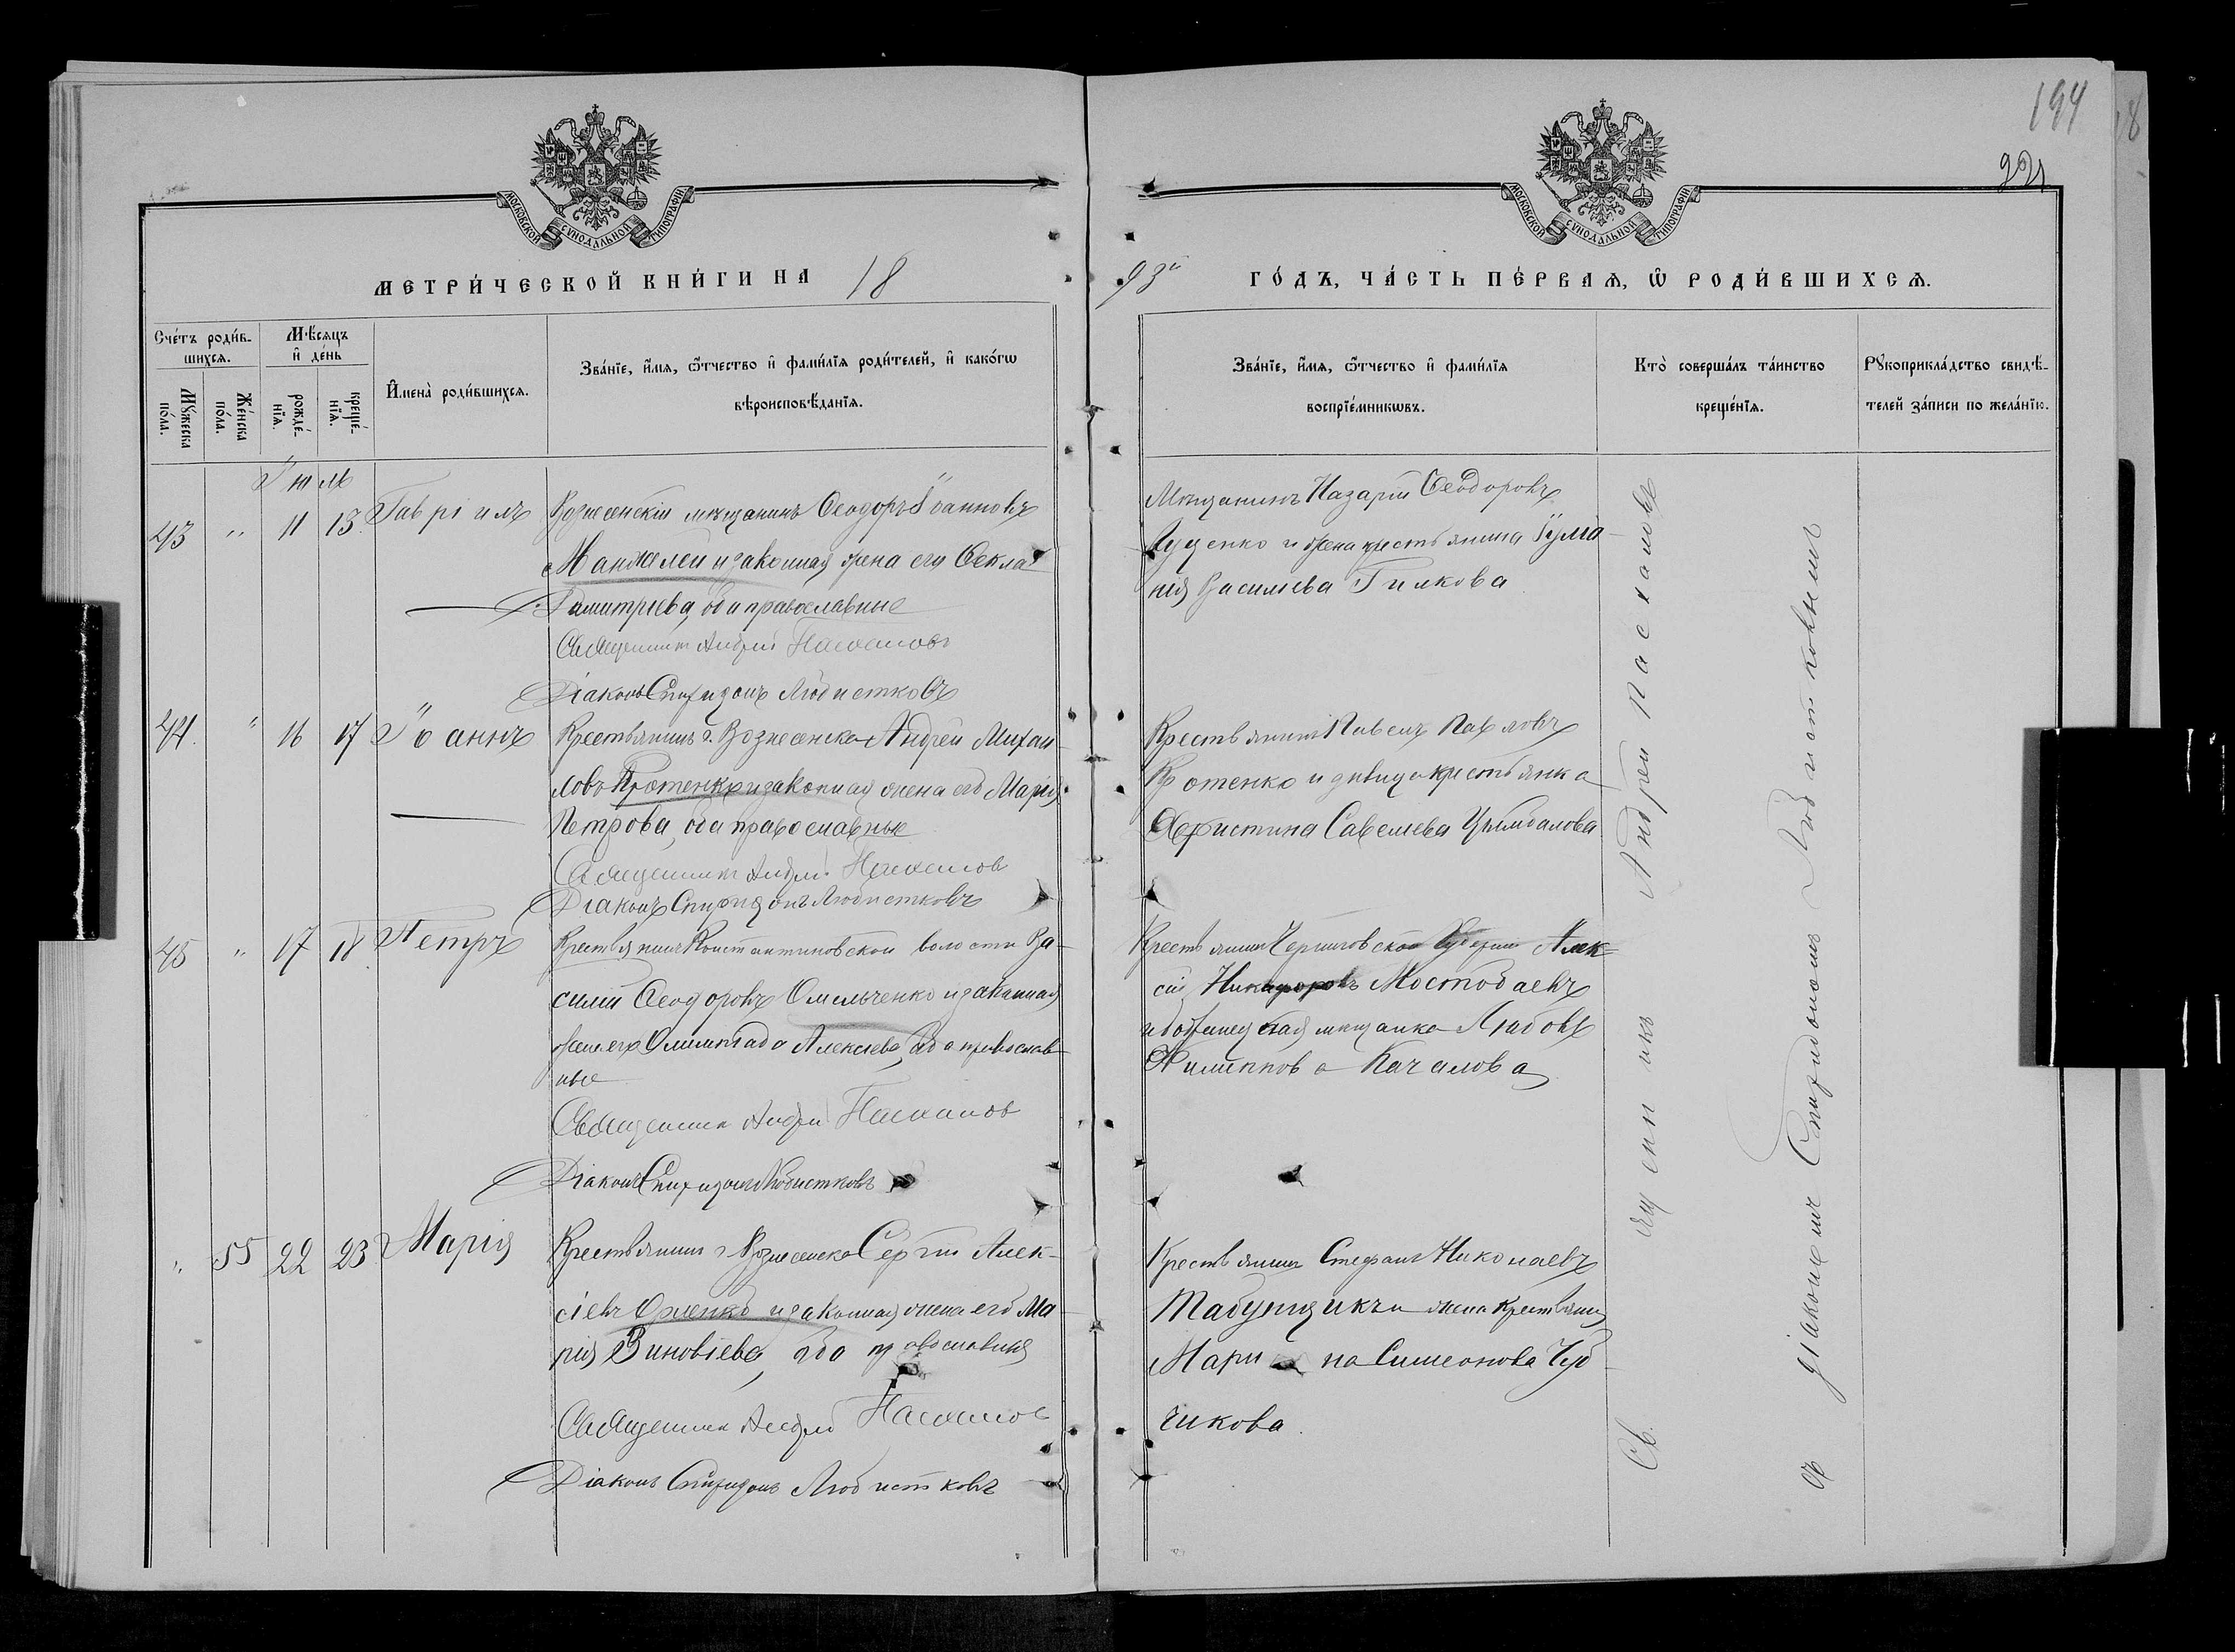 194
221
МОСКОВСКОЙ СѴНОДАЛЬНОЙ ТИПОГРАФІИ
МОСКОВСКОЙ СѴНОДАЛЬНОЙ ТИПОГРАФІИ
МЕТРИ́ЧЕСКОЙ КНИ́ГИ НА 18
93й ГО́ДЪ, ЧА́СТЬ ПЕ́РВАѦ, Ѡ РОДИ́ВШИХСѦ.
Сче́тъ роди́в-
шихсѧ.
Мꙋ́жеска по́ла.
Же́нска по́ла.
Мѣ́сѧцъ
и҆ де́нь
рожде́-
нїѧ.
креще́-
нїѧ.
И҆мена̀ роди́вшихсѧ.
Зва́нїе, и҆́мѧ, ѻ҆́тчество и҆ фами́лїѧ роди́телей, и҆ како́гѡ
вѣроисповѣ́данїѧ.
Зва́нїе, и҆́мѧ, ѻ҆́тчество и҆ фами́лїѧ
воспрїе́мникѡвъ.
Кто̀ соверша́лъ та́инство
креще́нїѧ.
Рꙋкоприкла́дство свидѣ́-
телей за́писи по жела́нїю.
Іюль
43 " 11 13 Гавріилъ
Вознесенскій мѣщанинъ Ѳеодоръ Іоанновъ
Манжелей и законная жена его Ѳекла
Димитріева, оба православные
Священникъ Андрей Пасхаловъ
Діаконъ Спиридонъ Любистковъ
Мѣщанинъ Назарій Ѳеодоровъ
Луценко и жена крестьянина Іулiа-
нія Васильева Гилкова
44. " 16 17 Іоаннъ
Крестьянинъ г. Вознесенска Андрей Михаи-
ловъ Кротенко и законная жена его Марія
Петрова, оба православные
Священникъ Андрей Пасхалов
Діаконъ Спиридонъ Любистковъ
Крестьянинъ Павелъ Павловъ
Кротенко и дѣвица крестьянка
Христина Савельева Цымбалова
45 " 17 18 Петръ
Крестьянинъ Константиновской волости Ва-
силій Ѳеодоровъ Омельченко и законная
жена его Олимпіада Алексіева, оба православ-
ные
Священникъ Андрей Пасхалов
Діаконъ Спиридонъ Любистковъ
Крестьянинъ Черниговской Губерніи Алек-
сій Никифоровъ Мостоваевъ
и мѣщанка Любовь
Филиппова Качалова
" 55 22 23 Марія
Крестьянинъ г. Вознесенска Сергій Алек-
сіевъ Орленко и законная жена его Ма-
рія Зиновіева, оба православныя
Священникъ Андрей Пасхалов
Діаконъ Спиридонъ Любистковъ
Крестьянинъ Стефанъ Николаевъ
Табунщикъ и жена крестьянина
Мари на Симеонова Чуб-
чикова.
Священникъ Андрей Пасхаловъ
съ діакономъ Спиридономъ Любистковымъ